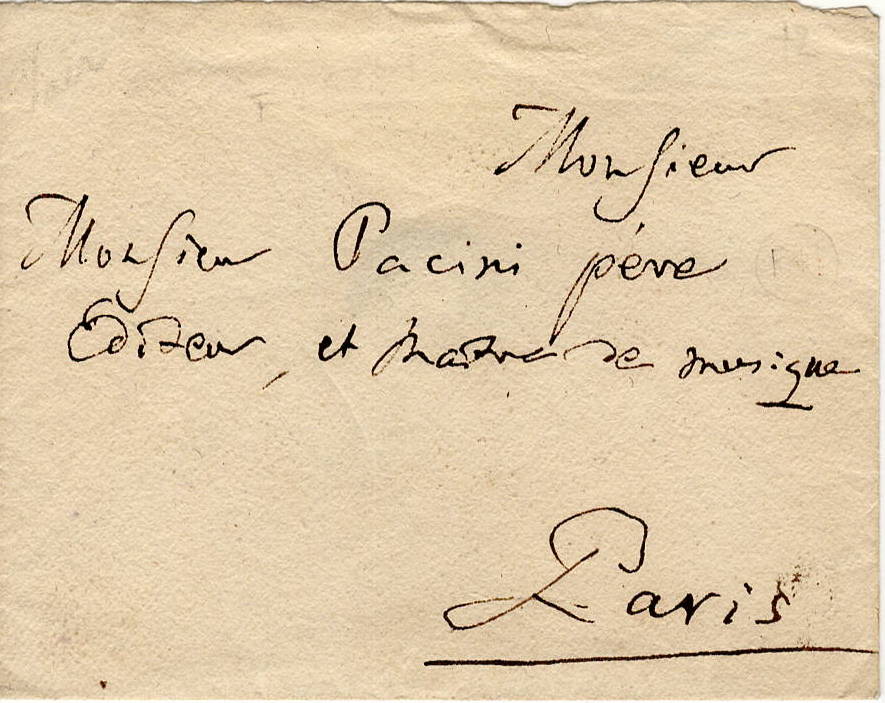 Monsieur
Monsieur Pacini père
Editeur, et Maître de musique
Paris